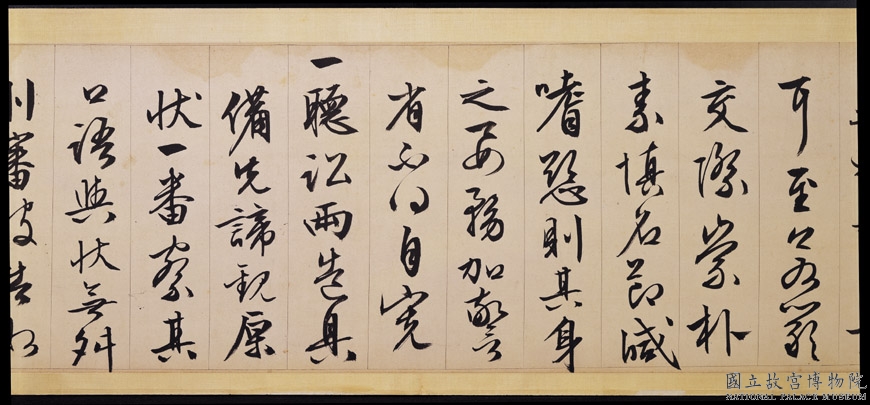 耳至
交際崇朴
素慎名節減
嗜慾則其身
之要務加警
省不得自寬
一聽訟兩造具
備先諦觀原
狀一番察其
口語與狀無舛
則審
國立故宮博物院
NATIONAL PALACE MUSEUM